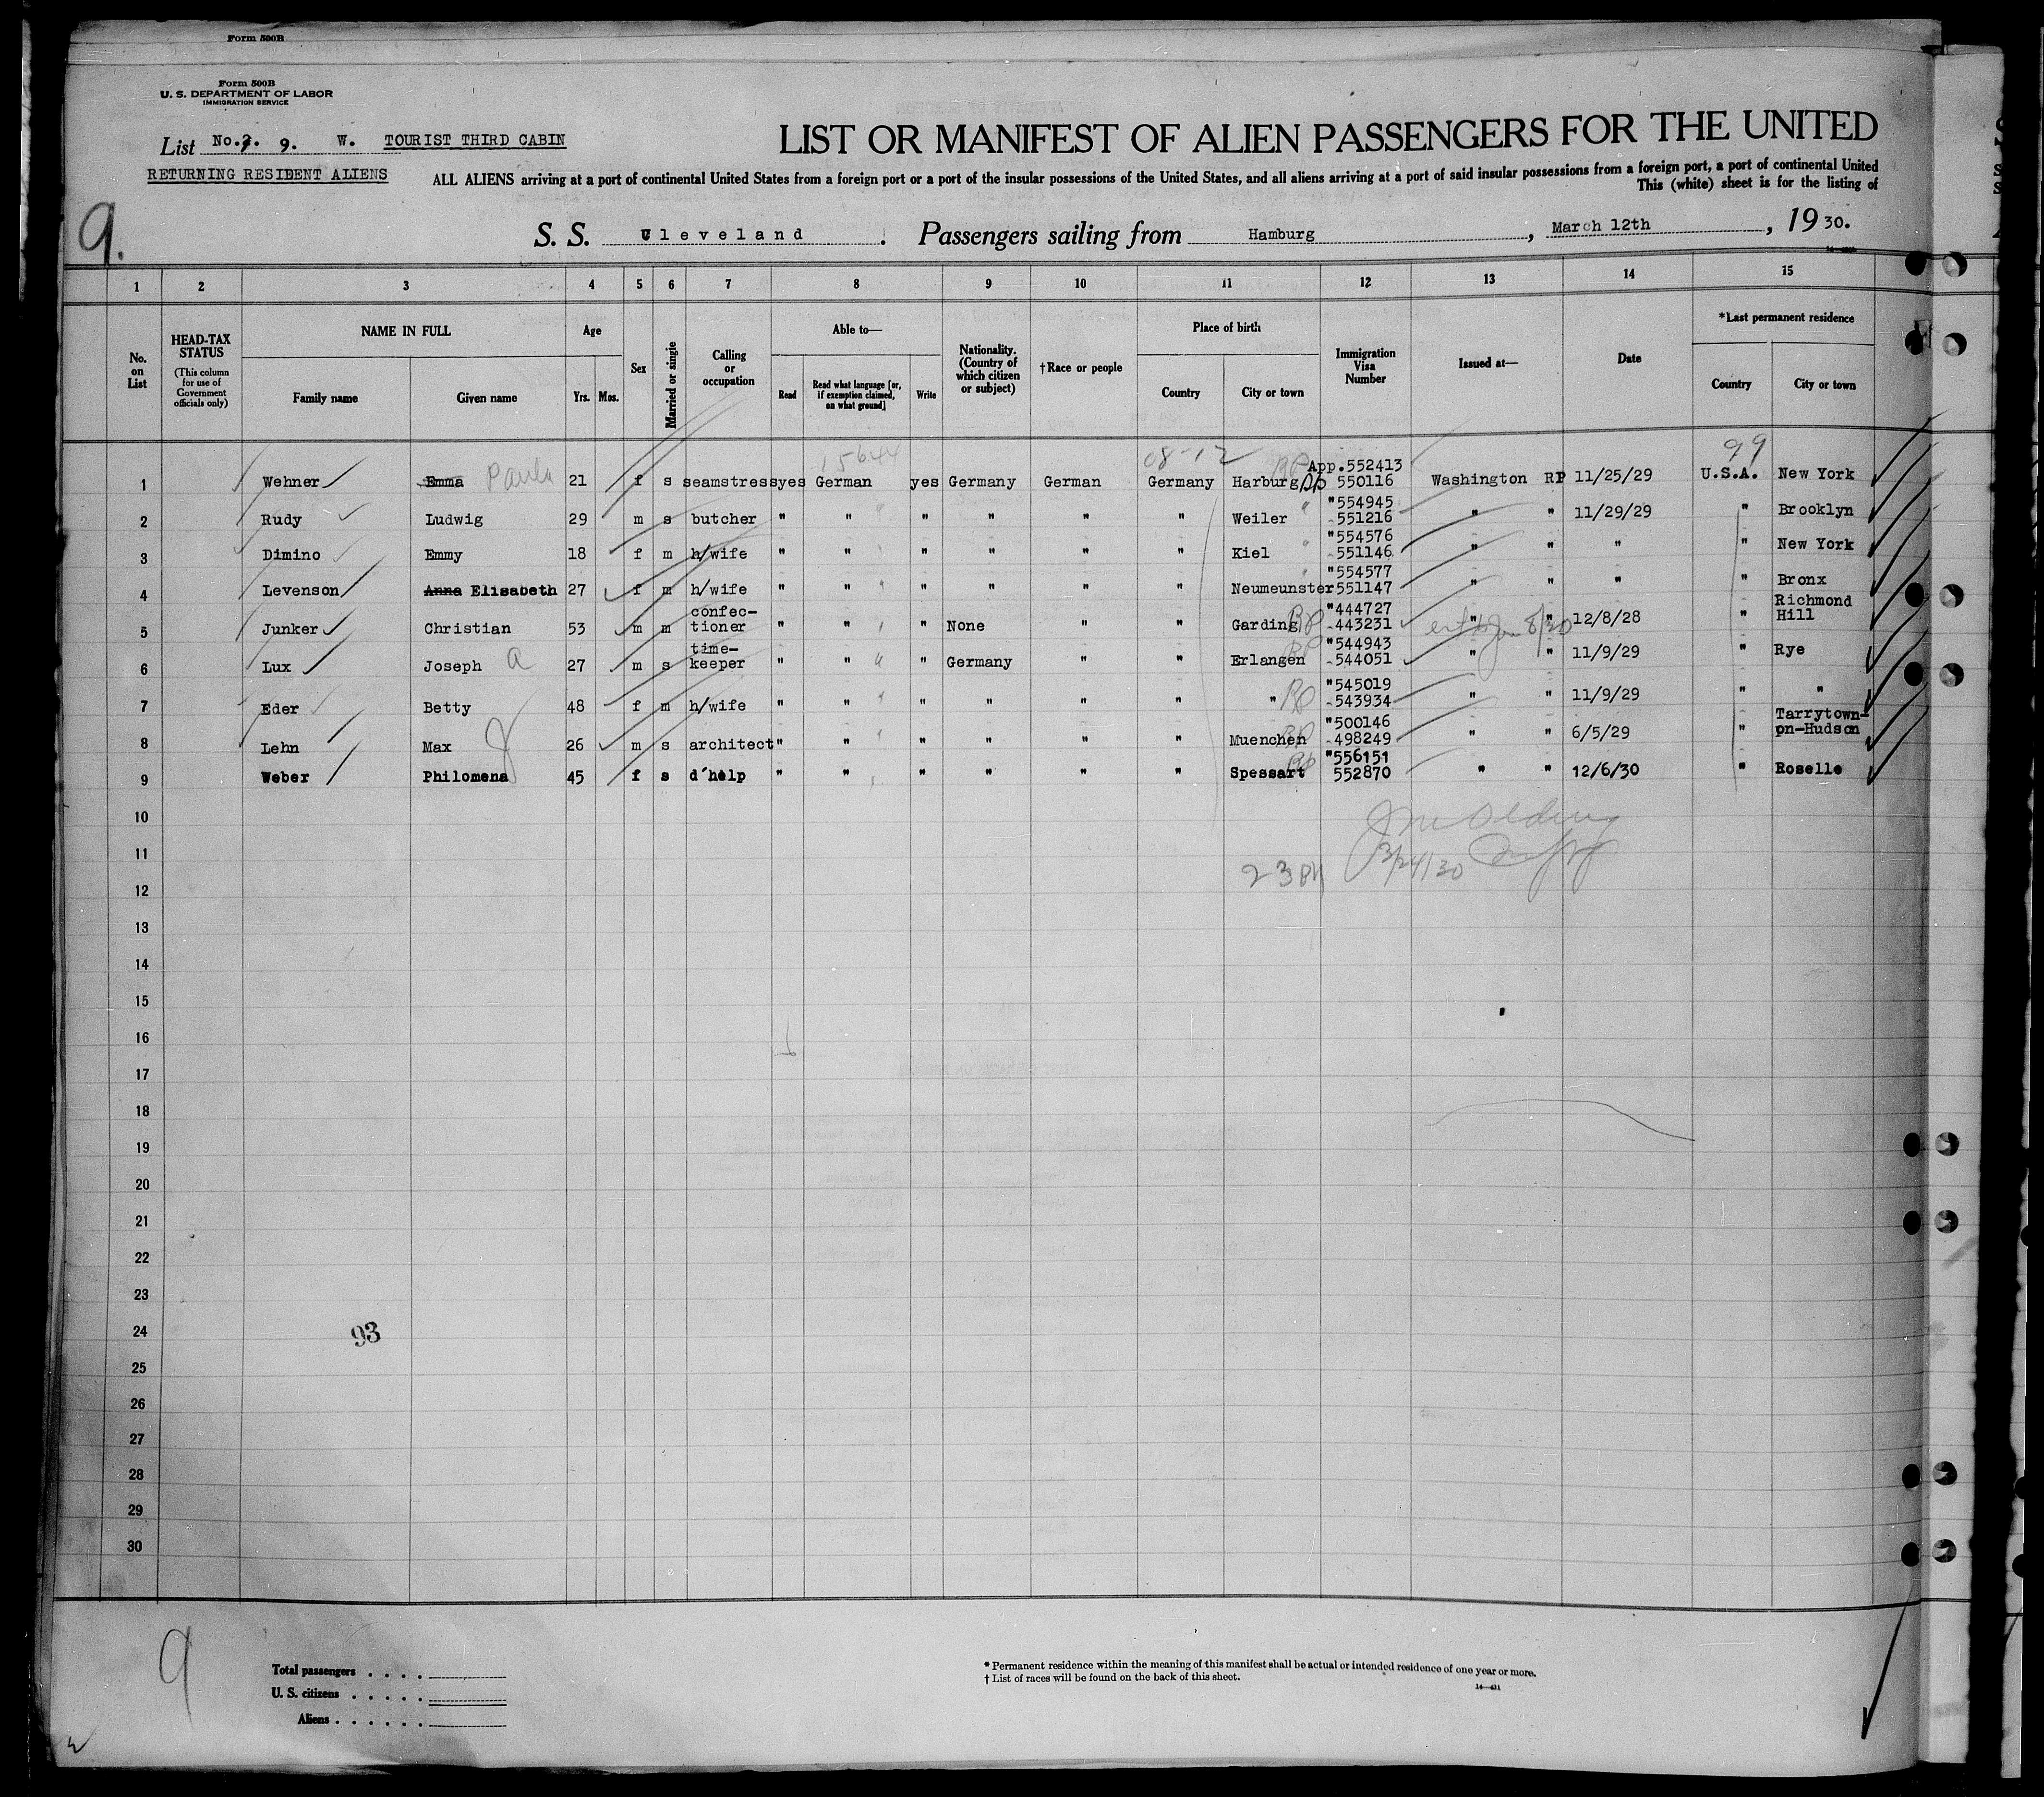 Form 500B
Form 500B
U. S. DEPARTMENT OF LABOR
IMMIGRATION SERVICE
List No. 9. W. TOURIST THIRD CABIN
RETURNING RESIDENT ALIENS
9.
LIST OR MANIFEST OF ALIEN PASSENGERS FOR THE UNITED
ALL ALIENS arriving at a port of continental United States from a foreign port or a port of the insular possessions of the United States, and all aliens arriving at a port of said insular possessions from a foreign port, a port of continental United
This (white) sheet is for the listing of
S. S. Cleveland . Passengers sailing from Hamburg , March 12th , 19 30.
1 2 3 4 5 6 7 8 9 10 11 12 13 14 15
No. on List
HEAD-TAX STATUS (This column for use of Government officials only)
NAME IN FULL Family name Given name
Age Yrs. Mos.
Sex
Married or single
Calling or occupation
Able to— Read Read what language [or, if exemption claimed, on what ground] Write
Nationality. (Country of which citizen or subject)
†Race or people
Place of birth Country City or town
Immigration Visa Number
Issued at—
Date
*Last permanent residence Country City or town
15644 08-12 99
1 Wehner Emma Paula 21 f s seamstress yes German yes Germany German Germany Harburg RP App.552413 550116 Washington RP 11/25/29 U.S.A. New York
2 Rudy Ludwig 29 m s butcher " " " " " " Weiler "554945 -551216 " " 11/29/29 " Brooklyn
3 Dimino Emmy 18 f m h/wife " " " " " " Kiel "554576 -551146 " " " " New York
4 Levenson Anna Elisabeth 27 f m h/wife " " " " " " Neumeunster "554577 551147 " " " " Bronx
5 Junker Christian 53 m m confec-tioner " " " None " " Garding RP "444727 -443231 " " 12/8/28 " Richmond Hill
6 Lux Joseph a 27 m s time-keeper " " " Germany " " Erlangen RP "544943 -544051 " " 11/9/29 " Rye
7 Eder Betty 48 f m h/wife " " " " " " " RP "545019 -543934 " " 11/9/29 " "
8 Lehn Max 26 m s architect " " " " " " Muenchen RP "500146 -498249 " " 6/5/29 " Tarrytown-on-Hudson
9 Weber Philomena 45 f s d'help " " " " " " Spessart RP "556151 552870 " " 12/6/30 " Roselle
10
11 3/24/30
12
13
14
15
16
17
18
19
20
21
22
23
24 93
25
26
27
28
29
30
9
Total passengers . . . .
U. S. citizens . . . . .
Aliens . . . . . .
* Permanent residence within the meaning of this manifest shall be actual or intended residence of one year or more.
† List of races will be found on the back of this sheet.